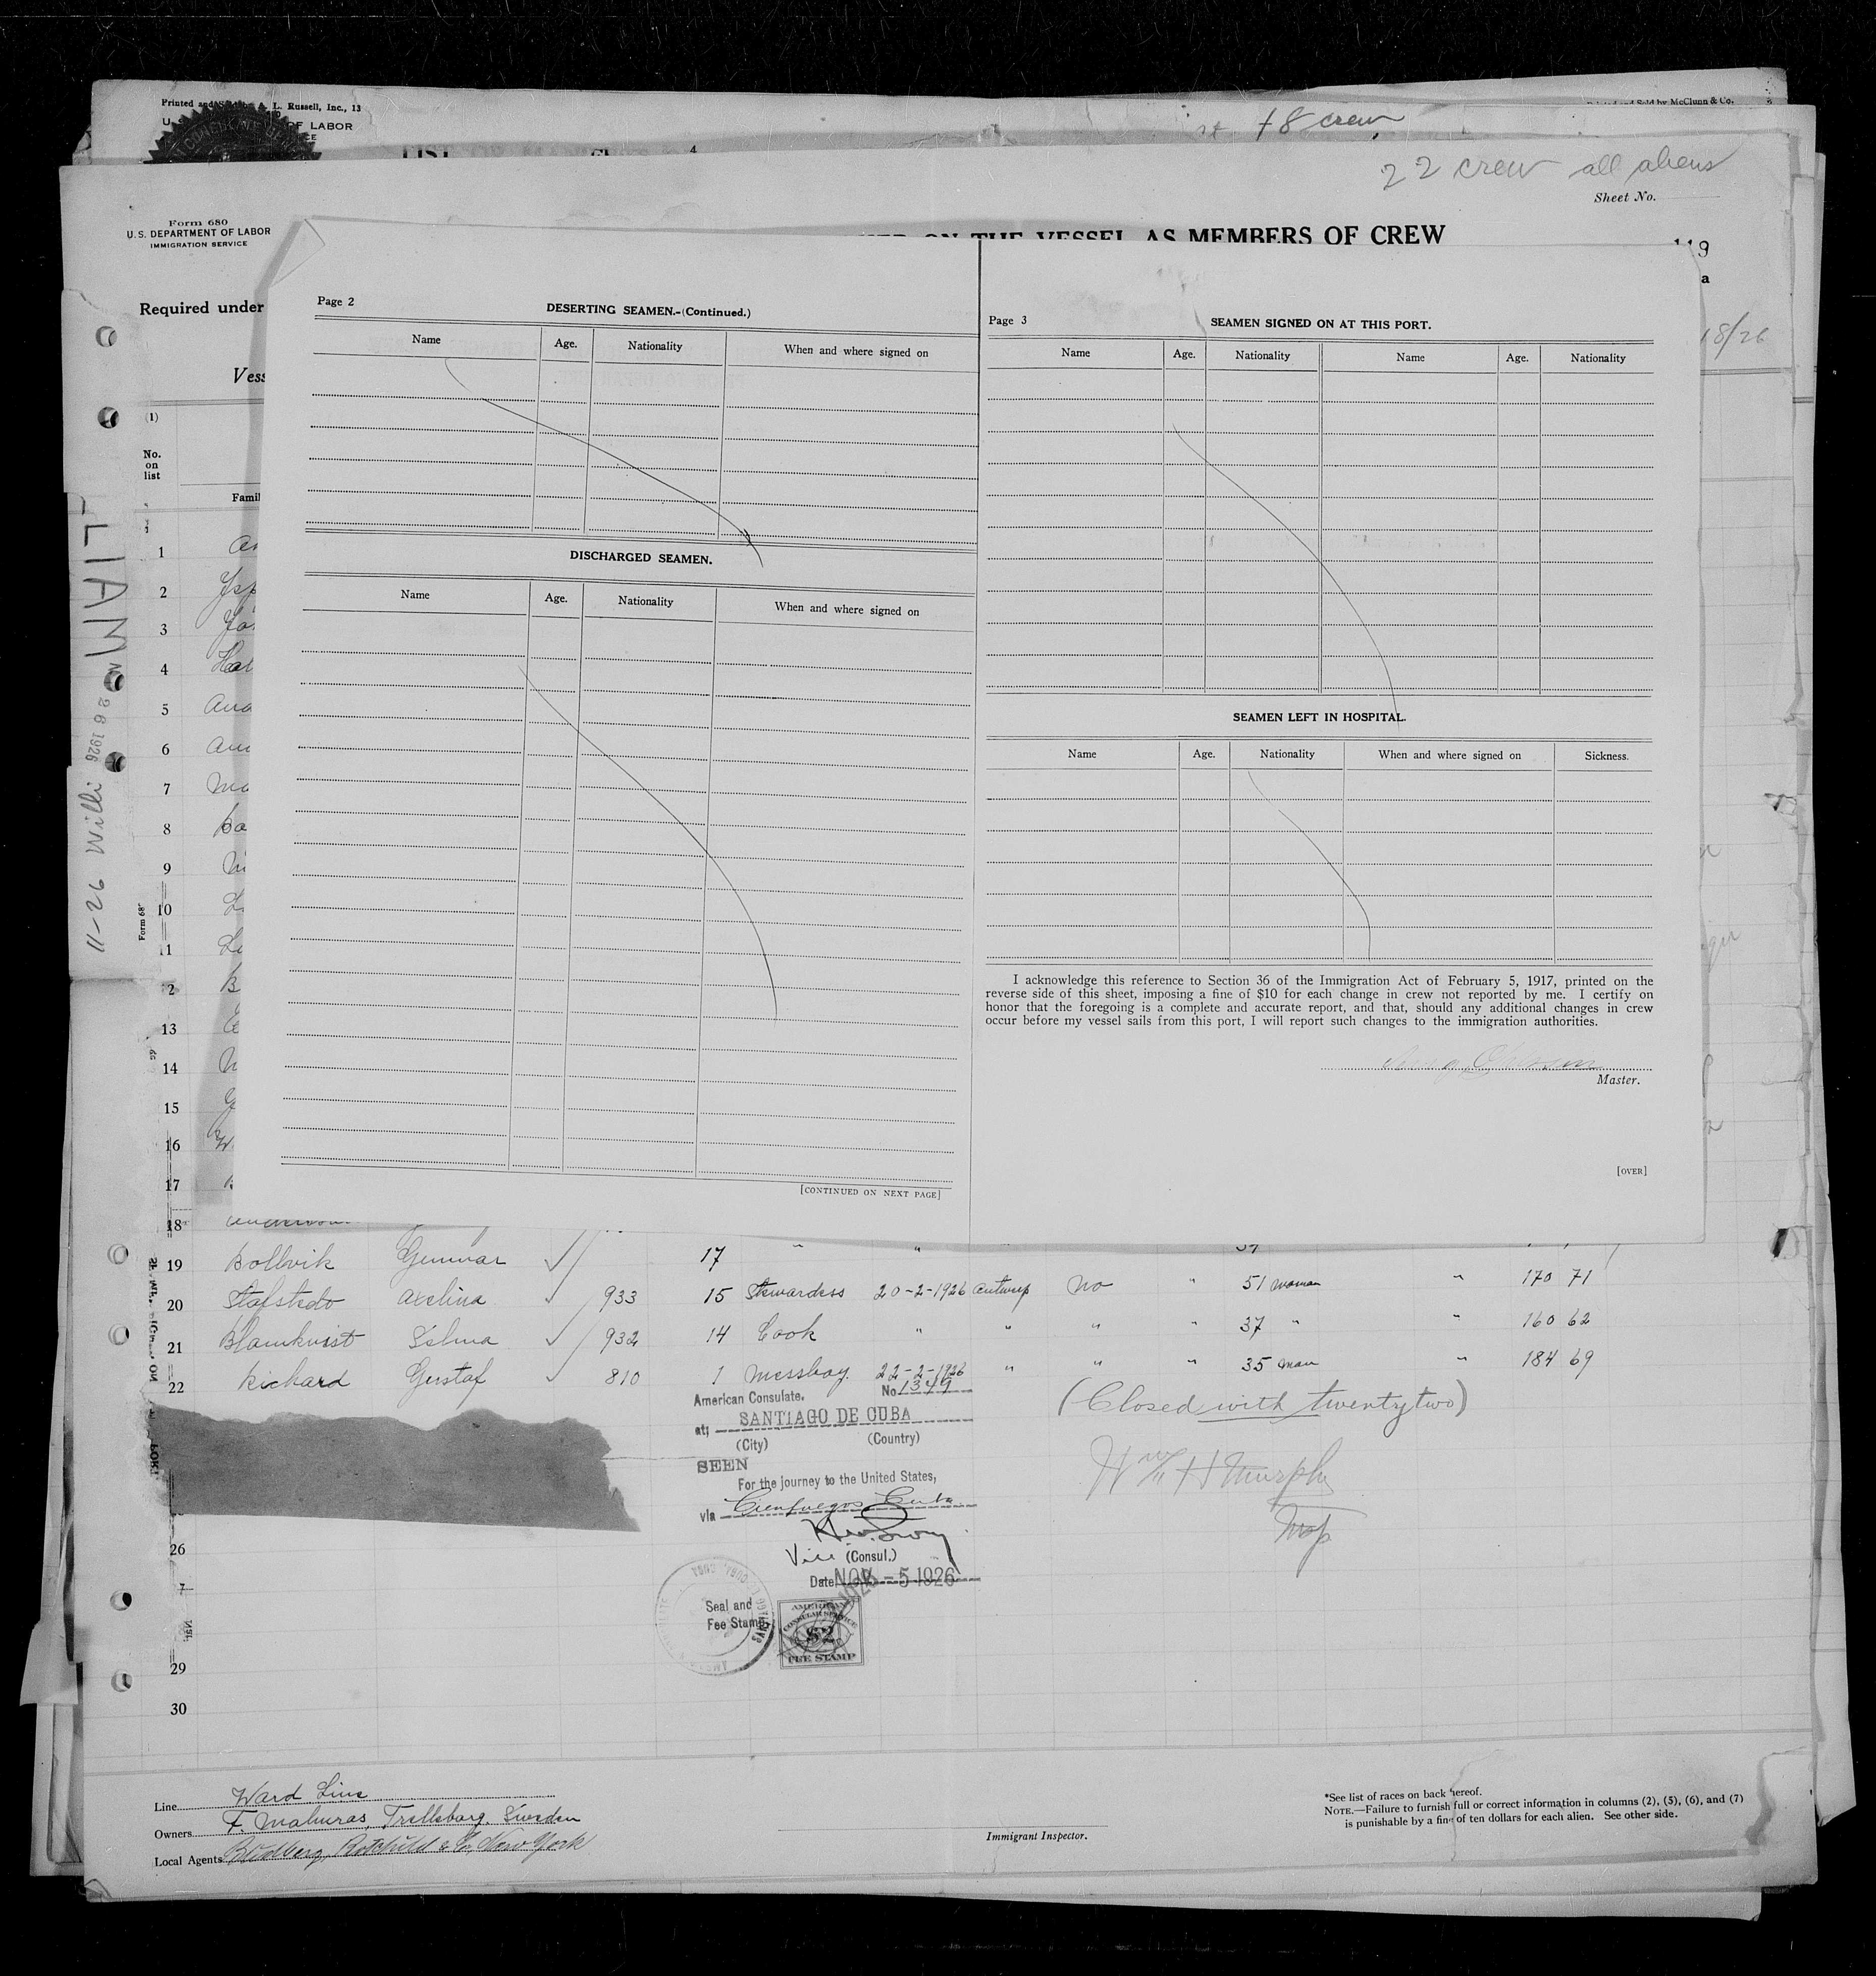 Printed and L. Russell, Inc., 13
Printed and Sold by McClunn & Co.
OF LABOR
LIST
+8 crew
22 crew all aliens
Sheet No.
Form 680
U. S. DEPARTMENT OF LABOR
IMMIGRATION SERVICE
ON THE VESSEL AS MEMBERS OF CREW
Required under
18/26
(1)
No. on list
Page 2
DESERTING SEAMEN.-(Continued.)
Name Age. Nationality When and where signed on
DISCHARGED SEAMEN.
Name Age. Nationality When and where signed on
[CONTINUED ON NEXT PAGE]
Page 3
SEAMEN SIGNED ON AT THIS PORT.
Name Age. Nationality Name Age. Nationality
SEAMEN LEFT IN HOSPITAL.
Name Age. Nationality When and where signed on Sickness.
I acknowledge this reference to Section 36 of the Immigration Act of February 5, 1917, printed on the
reverse side of this sheet, imposing a fine of $10 for each change in crew not reported by me. I certify on
honor that the foregoing is a complete and accurate report, and that, should any additional changes in crew
occur before my vessel sails from this port, I will report such changes to the immigration authorities.
Master.
[OVER]
11-26 Willi
26 1926
1
2
3
4
5
6
7
8
9
10
13
14
15
16
17
18
19 Bollvik Gunnar 17 "
20 Stafstedt Avelina 933 15 Stewardess 20-2-1926 Antwerp No " 51 woman " 170 71
21 Blamkvist Selma 932 14 Cook " " " " 37 " " 160 62
22 Richard Gustaf 810 1 Messboy. 22-2-1926 " " " 35 man " 184 69
(Closed with twentytwo)
American Consulate. No 1349
at; SANTIAGO DE CUBA
(City) (Country)
SEEN
For the journey to the United States,
via Cienfuegos Cuba
Vice (Consul.)
Date NOV - 5 1926
Seal and
Fee Stamp
AMERICAN
CONSULAR SERVICE
$2
FEE STAMP
Wm H Murphy
Insp
26
29
30
Line Ward Line
Owners F. Malmros, Trelleborg, Sweden
Local Agents New York
Immigrant Inspector.
*See list of races on back hereof.
NOTE.—Failure to furnish full or correct information in columns (2), (5), (6), and (7)
is punishable by a fine of ten dollars for each alien. See other side.